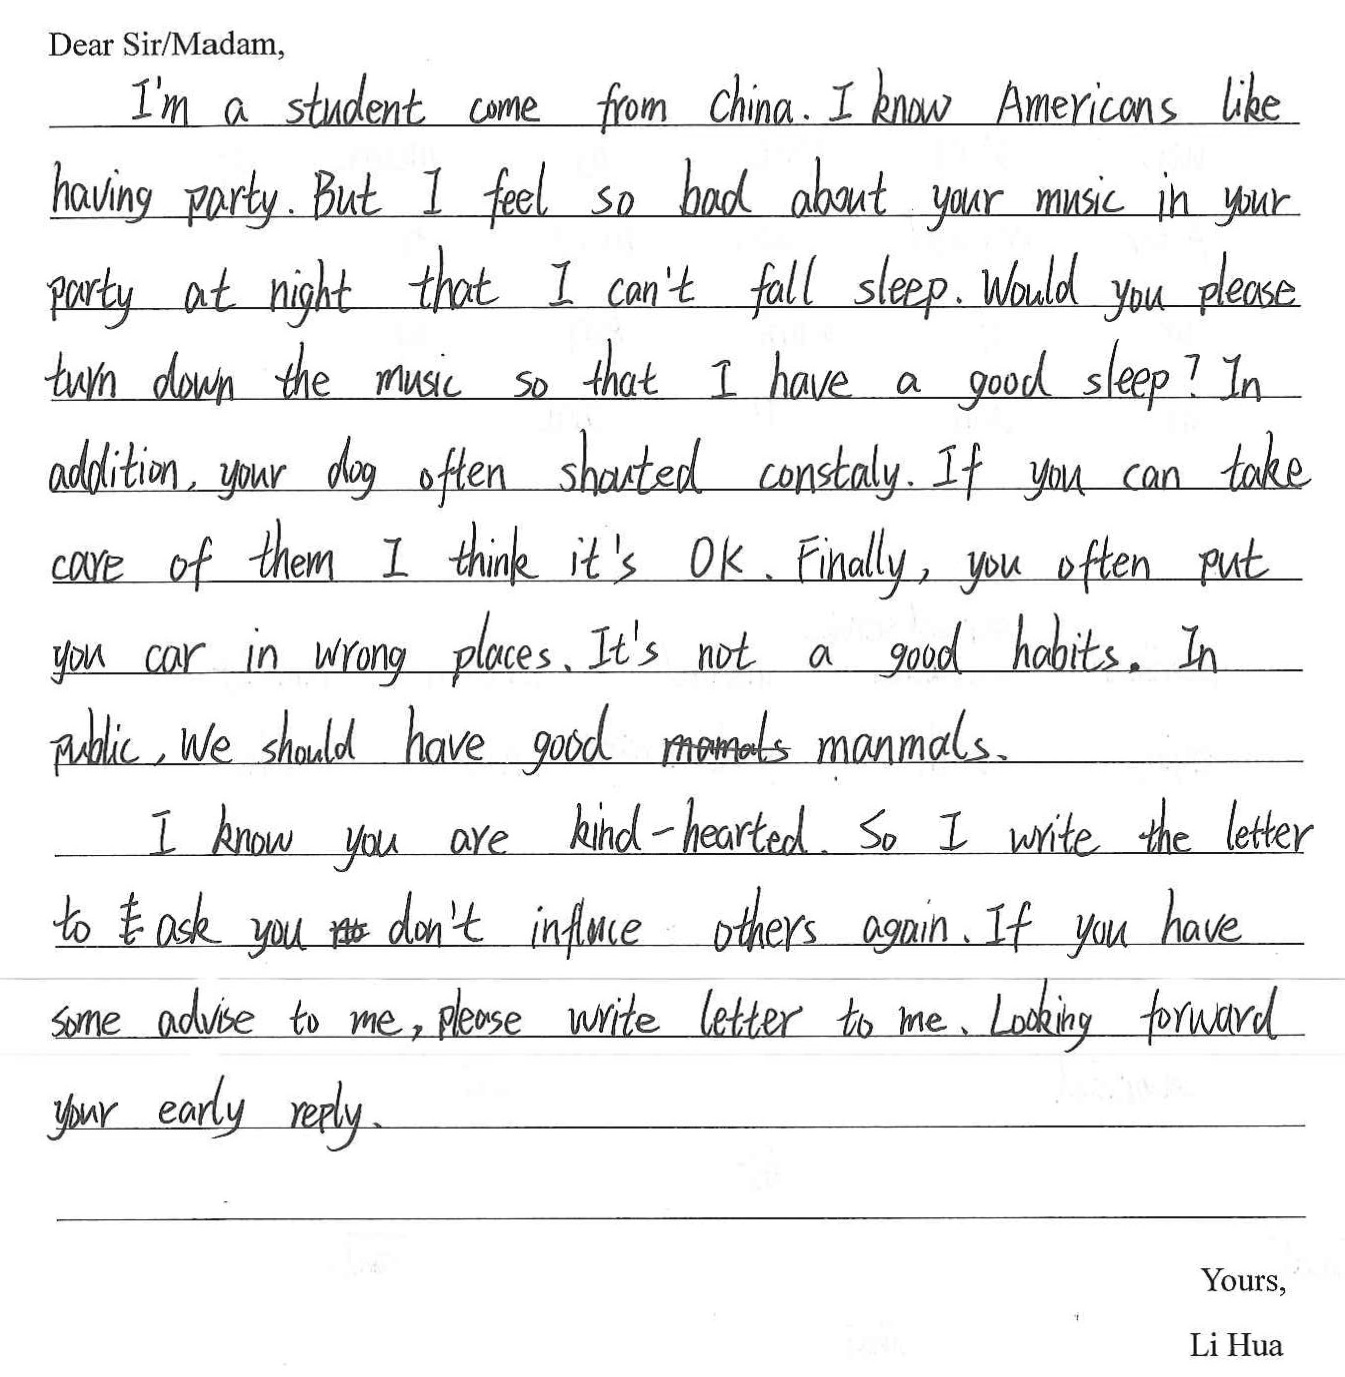 Dear Sir/Madam,
I'm a student come from China. I know Americans like
having party. But I feel so bad about your music in your
party at night that I can't fall sleep. Would you please
turn down the music so that I have a good sleep? In
addition, your dog often shouted constaly. If you can take
care of them I think it's OK. Finally, you often put
you car in wrong places. It's not a good habits. In
public, We should have good mamals manmals.
I know you are kind-hearted. So I write the letter
to t ask you don't influce others again. If you have
some advise to me, please write letter to me. Looking forward
your early reply.
Yours,
Li Hua